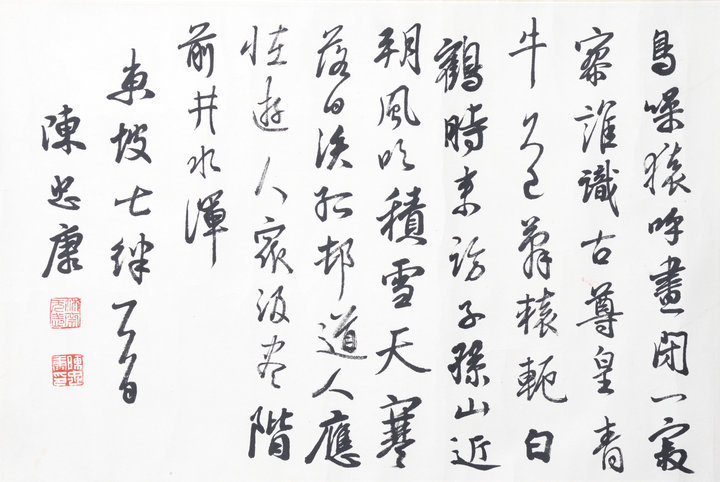 鳥噪猿呼晝閉門寂
寥誰識古尊皇青
牛久已辭轅軛白
鶴時來訪子孫山近
朔風吹積雪天寒
落日淡孤邨道人應
怪遊人衆汲盡階
前井水渾
東坡七律一首
陳忠康